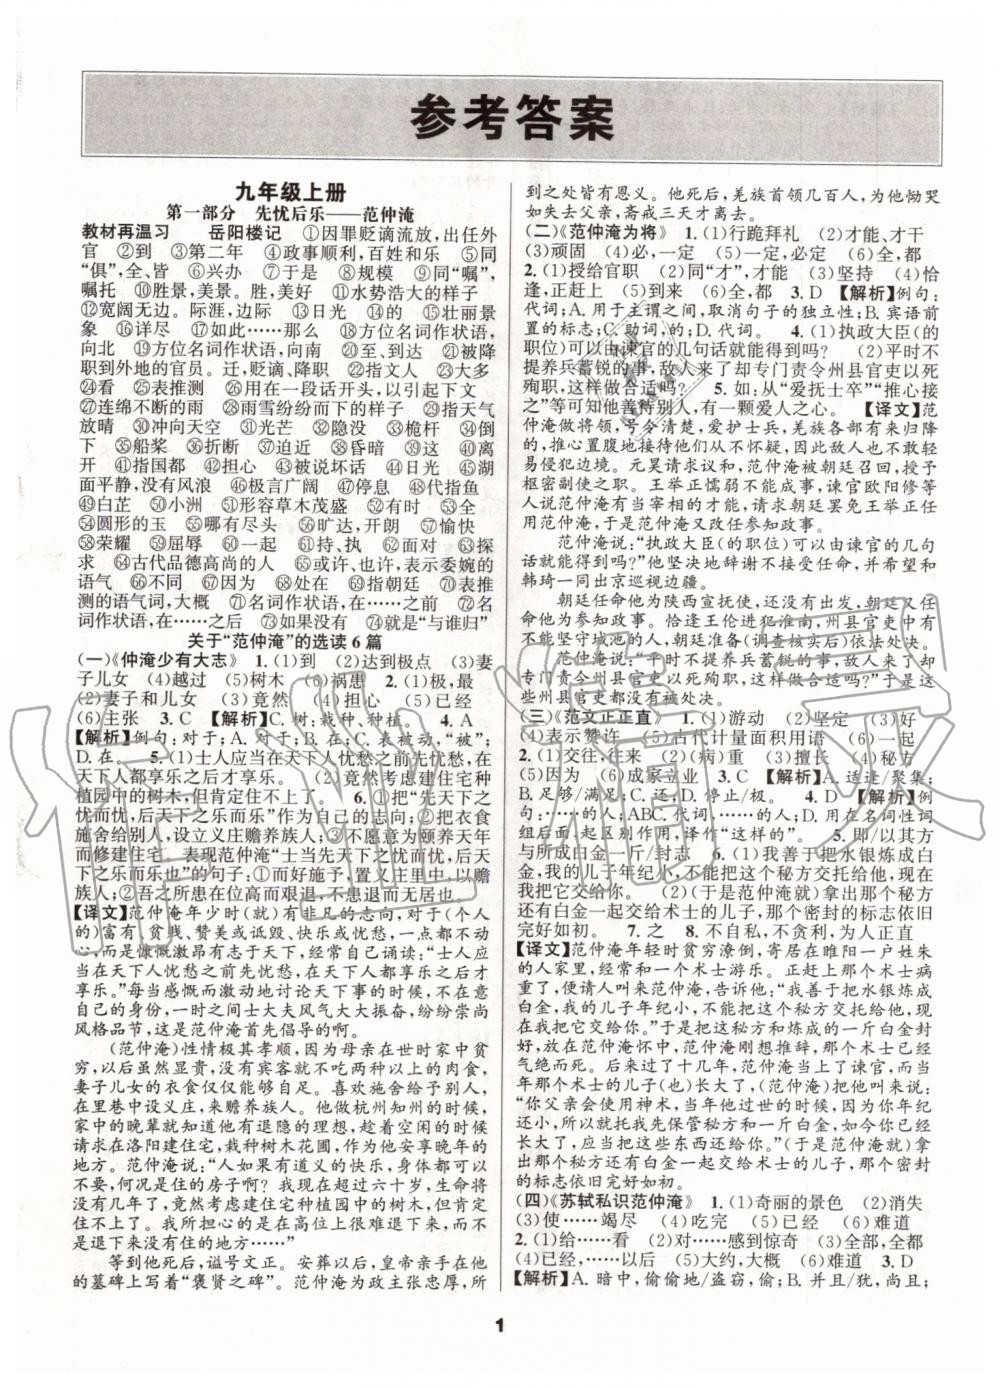 参考答案
九年级上册
第一部分　先忧后乐——范仲淹
教材再温习　　岳阳楼记　①因罪贬谪流放,出任外
官　②到　③第二年　④政事顺利,百姓和乐　⑤同
“俱”,全、皆　⑥兴办　⑦于是　⑧规模　⑨同“嘱”,
嘱托　⑩胜景,美景。胜,美好　⑪水势浩大的样子
⑫宽阔无边。际涯,边际　⑬日光　⑭的　⑮壮丽景
象　⑯详尽　⑰如此……那么　⑱方位名词作状语,
向北　⑲方位名词作状语,向南　⑳至、到达　㉑被降
职到外地的官员。迁,贬谪、降职　㉒指文人　㉓大多
㉔看　㉕表推测　㉖用在一段话开头,以引起下文
㉗连绵不断的雨　㉘雨雪纷纷而下的样子　㉙指天气
放晴　㉚冲向天空　㉛光芒　㉜隐没　㉝桅杆　㉞倒
下　㉟船桨　㊱折断　㊲迫近　㊳昏暗　㊴这　㊵离
开　㊶指国都　㊷担心　㊸被说坏话　㊹日光　㊺湖
面平静,没有风浪　㊻极言广阔　㊼停息　㊽代指鱼
㊾白芷　㊿小洲　51形容草木茂盛　52尽　53全
54圆形的玉　55哪有尽头　56旷达,开朗　57愉快
58荣耀　59屈辱　60一起　61指执、持　62面对　63探
求　64古代品德高尚的人　65或许、也许,表示委婉的
语气　66不同　67因为　68在　69指朝廷　70表推
测的语气词,大概　71名词作状语,在……之前　72名
词作状语,在……之后　73如果没有　74就是“与谁归”
关于“范仲淹”的选读6篇
(一)《仲淹少有大志》　1.(1)到　(2)达到极点　(3)妻
子儿女　(4)越过　(5)树木　(6)祸患　2.(1)极,最
(2)妻子和儿女　(3)竟然　(4)担心　(5)已经
(6)主张　3.C　【解析】C.树:栽种、种植。　4.A
【解析】例句:对于;A.对于;B.在;C.表示被动,“被”;
D.在。　5.(1)士人应当在天下人忧愁之前忧愁,在
天下人都享乐之后才享乐。　(2)竟然考虑建住宅种
植园中的树木,但肯定住不上了。　6.①把“先天下之
忧而忧,后天下之乐而乐”作为自己的志向;②把衣食
施舍给别人,设立义庄赡养族人;③不愿意为颐养天年
而修建住宅。　表现范仲淹“士当先天下之忧而忧,后天
下之乐而乐也”的句子:①而好施予,置义庄里中,以赡
族人;②吾之所患在位高而艰退,不患退而无居也。
【译文】范仲淹年少时(就)有非凡的志向,对于(个人
的)富有、贫贱、赞美或诋毁、快乐或忧愁,一点都不动
心,而是慷慨激昂有志于天下,他经常朗诵:“士人应
当在天下人忧愁之前忧愁,在天下人都享乐之后才
享乐。”每当感慨而激动地讨论天下事的时候,不在意
自己的身份,一时之间士大夫风气大大振奋,纷纷崇尚
风格品节,这是范仲淹首先倡导的啊。
(范仲淹)性情极其孝顺,因为母亲在世时家中贫
穷,以后虽然显贵,没有宾客就不吃两种以上的肉食,
妻子儿女的衣食仅仅能够自足。喜欢施舍给予别人,
在里巷中设义庄,来赡养族人。他做杭州知州的时候,
家中的晚辈就知道他有退隐的理想,趁着空闲的时候
请求在洛阳建住宅,栽种树木花圃,作为他安享晚年的
地方。范仲淹说:“人如果有道义的快乐,身体都可以
不要,何况是住的房子呢?我现在超过六十岁,生命也
没有几年了,竟然考虑建住宅种植园中的树木,但肯定
住不上了。我所担心的是在高位上很难退下来,而不
是退下来没有住的地方……”
等到他死后,谥号文正。安葬以后,皇帝亲手在他
的墓碑上写着“褒贤之碑”。范仲淹为政主张忠厚,所
到之处皆有恩义。他死后,羌族首领几百人,为他恸哭
如失去父亲,斋戒三天才离去。
(二)《范仲淹为将》　1.(1)行跪拜礼　(2)才能、才干
(3)顽固　(4)必,一定　(5)一定,必定　(6)全,都
2.(1)授给官职　(2)同“才”,才能　(3)坚持　(4)恰
逢,正赶上　(5)到来　(6)全,都　3.D　【解析】例句:
代词;A.用于主谓之间,取消句子的独立性;B.宾语前
置的标志;C.助词,的;D.代词。　4.(1)执政大臣(的
职位)可以由谏官的几句话就能得到吗?　(2)平时不
提养兵蓄锐的事,敌人来了却专门责令州县官吏以死
殉职,这样做合适吗?　5.如:从“爱抚士卒”“推心接
之”等可知他善待别人,有一颗爱人之心。　【译文】范
仲淹做将领,号令清楚,爱护士兵,羌族有来归降的,
推心置腹地接待他们从不怀疑,因此敌人也不敢轻
易侵犯边境。元昊请求议和,范仲淹被朝廷召回,授予
枢密副使之职。王举正懦弱不能成事,谏官欧阳修等
人说范仲淹有当宰相的才能,请求朝廷罢免王举正任
用范仲淹,于是范仲淹又改任参知政事。
范仲淹说:“执政大臣(的职位)可以由谏官的几句
话就得到吗?”他坚决地辞谢不接受任命,并希望和
韩琦一同出京巡视边疆。
朝廷任命他为陕西宣抚使,还没有出发,朝廷又任
命他为参知政事。恰逢王伦进犯淮南,州、县官吏中有
不能坚守城池的人,朝廷想(调查核实后)依法处决。
范仲淹说:“平时不提养兵蓄锐的事,敌人来了却
专门责令州县官吏以死殉职,这样做合适吗?”于是这
些州县官吏没有被处决。
(三)《范文正正直》　1.(1)游动　(2)坚定　(3)好
(4)表示赞许　(5)古代计量面积用语　(6)一起
2.(1)交往,往来　(2)(病)重　(3)擅长　(4)秘方
(5)因为　(6)成家立业　3.C　【解析】A.适逢/聚集;
B.足够/满足;C.还;D.停止/极。　4.D　【解析】例
句:……的人;ABC.代词……的人;D.用在名词性词
组后面,起区别作用,译作“这样的”。　5.即/以其方
与所成白金一斤/封志　6.(1)我善于把水银炼成白金,
我的儿子年纪小,不能把这个秘方交托给他,现在
我把它交给你。　(2)(于是范仲淹)就拿出那个秘方
还有白金一起交给术士的儿子,那个密封的标志依旧
完好如初。　7.之　8.不自私,不贪利,为人正直
【译文】范仲淹年轻时贫穷潦倒,寄居在睢阳一户姓朱
的人家里,经常和一个术士游乐。正赶上那术士病
重了,便请人叫来范仲淹,告诉他:“我善于把水银炼成
白金,我的儿子年纪小,不能把这个秘方交托给他,现
在我把它交给你。”于是把这秘方和炼成的一斤白金封
好,放在范仲淹怀中,范仲淹刚想推辞,那术士已经
气绝而亡。后来过了十几年,范仲淹当上了谏官,而当
年那个术士的儿子(也)长大了,范仲淹把他叫来说:
“你父亲会使用神术,当年他过世的时候,因为你年纪
还小,所以就托我先保管秘方和白金,如今你已经长大
了,应当把这些东西还给你。”(于是范仲淹就)拿出
那个秘方还有白金一起交给术士的儿子,那个密封的
标志依旧完好如初。
(四)《苏轼私识范仲淹》　1.(1)奇丽的景色　(2)消失
(3)使……竭尽　(4)吃完　(5)已经　(6)难道
2.(1)给……看　(2)对……感到惊奇　(3)全部,全都
(4)已经,……以后　(5)大约,大概　(6)难道　3.D
【解析】A.暗中,偷偷地/盗窃,偷;B.并且/犹,尚且;
1